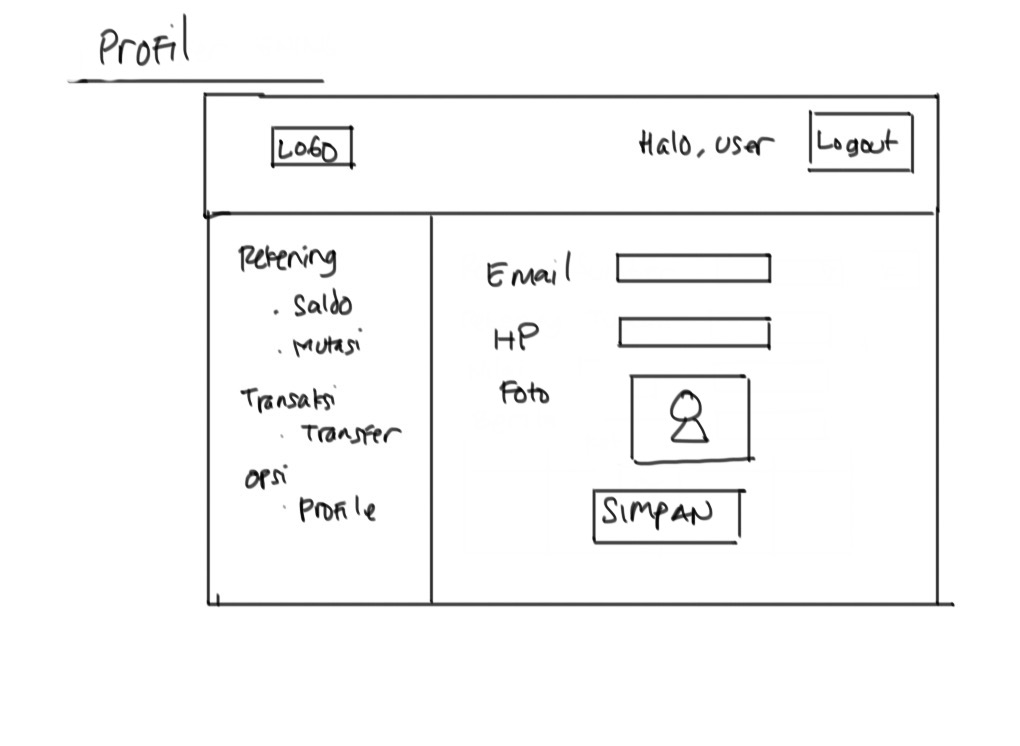 Profil
LOGO
Halo, user
Logout
Rekening
. Saldo
. Mutasi
Transaksi
. Transfer
opsi
. Profile
Email
HP
Foto
SIMPAN